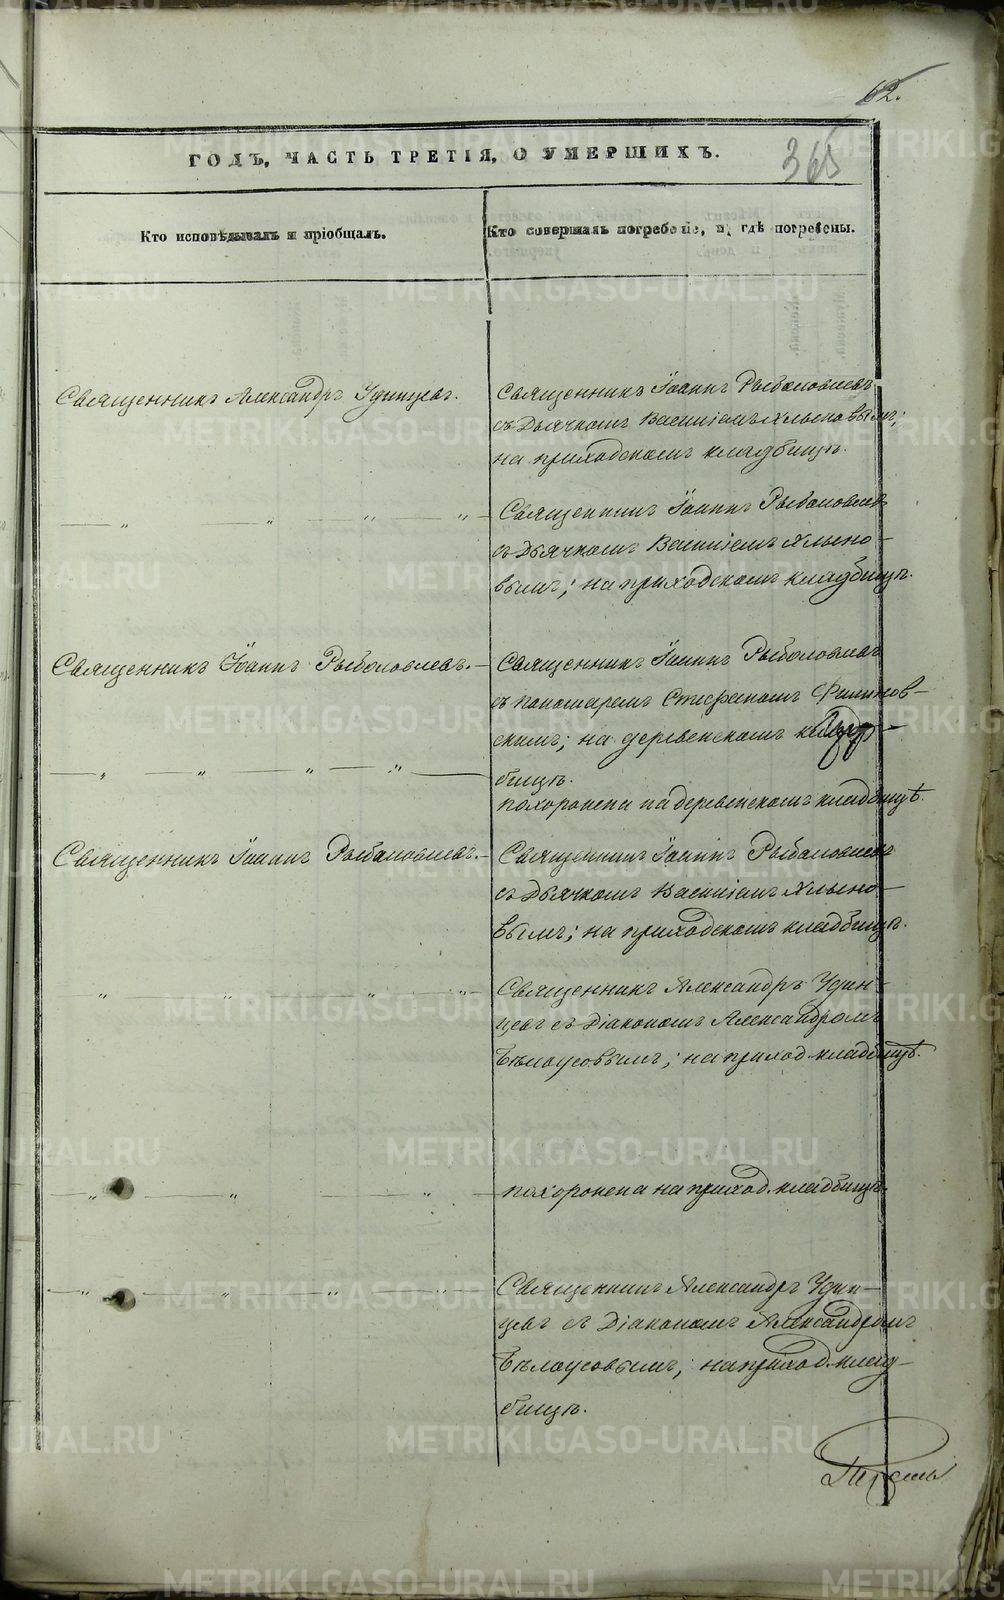 62.
365
ГОДЪ, ЧАСТЬ ТРЕТІЯ, О УМЕРШИХЪ.
Кто исповѣдывалъ и пріобщалъ.
Кто совершалъ погребеніе, и гдѣ погребены.
Священникъ Александръ Удинцевъ.
Священникъ Іоаннъ Рыболовлевъ
съ Дьячкомъ Василіемъ Хлыновымъ;
на приходскомъ кладбищѣ.
— „ — „ — „ — „ —
Священникъ Іоаннъ Рыболовлевъ
съ Дьячкомъ Василіемъ Хлыно-
вымъ; на приходскомъ кладбищѣ.
Священникъ Іоаннъ Рыболовлевъ. —
Священникъ Іоаннъ Рыболовлевъ
съ пономаремъ Стефаномъ
скимъ; на деревенскомъ клад-
бищѣ.
— „ — „ — „ — „ —
похоронена на деревенскомъ кладбищѣ.
Священникъ Іоаннъ Рыболовлевъ. —
Священникъ Іоаннъ Рыболовлевъ
съ Дьячкомъ Василіемъ Хлыно-
вымъ; на приходскомъ кладбищѣ.
— „ — „ — „ — „ —
Священникъ Александръ Удин-
цевъ съ Діакономъ Александромъ
Бѣлоусовымъ; на приход. кладбищѣ.
— „ — „ — „ —
похоронена на приход. кладбищѣ.
— „ — „ — „ — „ —
Священникъ Александръ Удин-
цевъ съ Діакономъ Александромъ
Бѣлоусовымъ; на приход. клад-
бищѣ.
METRIKI.GASO-URAL.RU